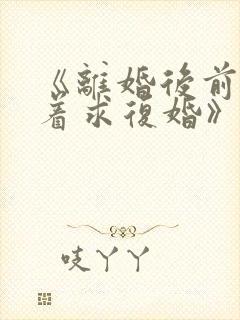 《離婚後前
着求復婚》
吱丫丫